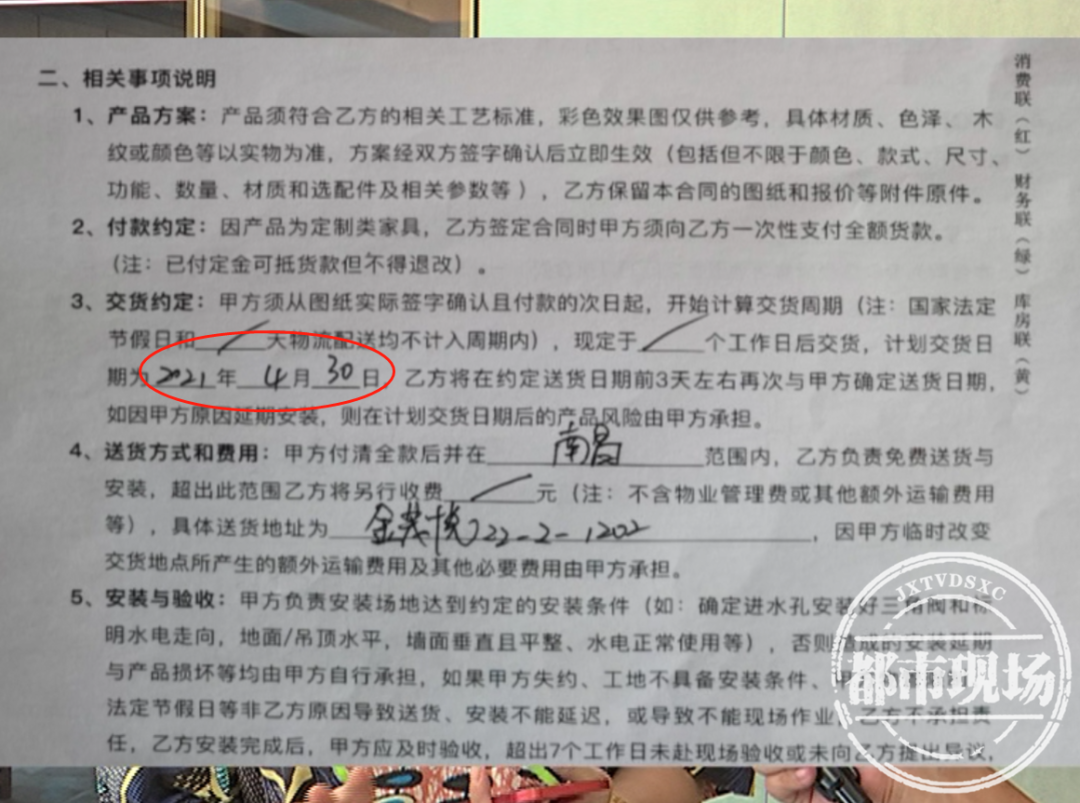 二、相关事项说明
1、产品方案：产品须符合乙方的相关工艺标准，彩色效果图仅供参考，具体材质、色泽、木
纹或颜色等以实物为准，方案经双方签字确认后立即生效（包括但不限于颜色、款式、尺寸、
功能、数量、材质和选配件及相关参数等），乙方保留本合同的图纸和报价等附件原件。
2、付款约定：因产品为定制类家具，乙方签定合同时甲方须向乙方一次性支付全额货款。
（注：已付定金可抵货款但不得退改）。
3、交货约定：甲方须从图纸实际签字确认且付款的次日起，开始计算交货周期（注：国家法定
节假日和／天物流配送均不计入周期内），现定于／个工作日后交货，计划交货日
期为2021年4月30日，乙方将在约定送货日期前3天左右再次与甲方确定送货日期，
如因甲方原因延期安装，则在计划交货日期后的产品风险由甲方承担。
4、送货方式和费用：甲方付清全款后并在南昌范围内，乙方负责免费送货与
安装，超出此范围乙方将另行收费／元（注：不含物业管理费或其他额外运输费用
等），具体送货地址为金茂悦22-2-1202，因甲方临时改变
交货地点所产生的额外运输费用及其他必要费用由甲方承担。
5、安装与验收：甲方负责安装场地达到约定的安装条件（如：确定进水孔安装好三角阀和
明水电走向，地面/吊顶水平，墙面垂直且平整、水电正常使用等），否则造成的安装延期
与产品损坏等均由甲方自行承担，如果甲方失约、工地不具备安装条件、
法定节假日等非乙方原因导致送货、安装不能延迟，或导致不能现场作业，乙方不承担责
任，乙方安装完成后，甲方应及时验收，超出7个工作日未赴现场验收或未向乙方提出异议，
消费联（红） 财务联（绿） 库房联（黄）
JXTVDSXC
都市现场